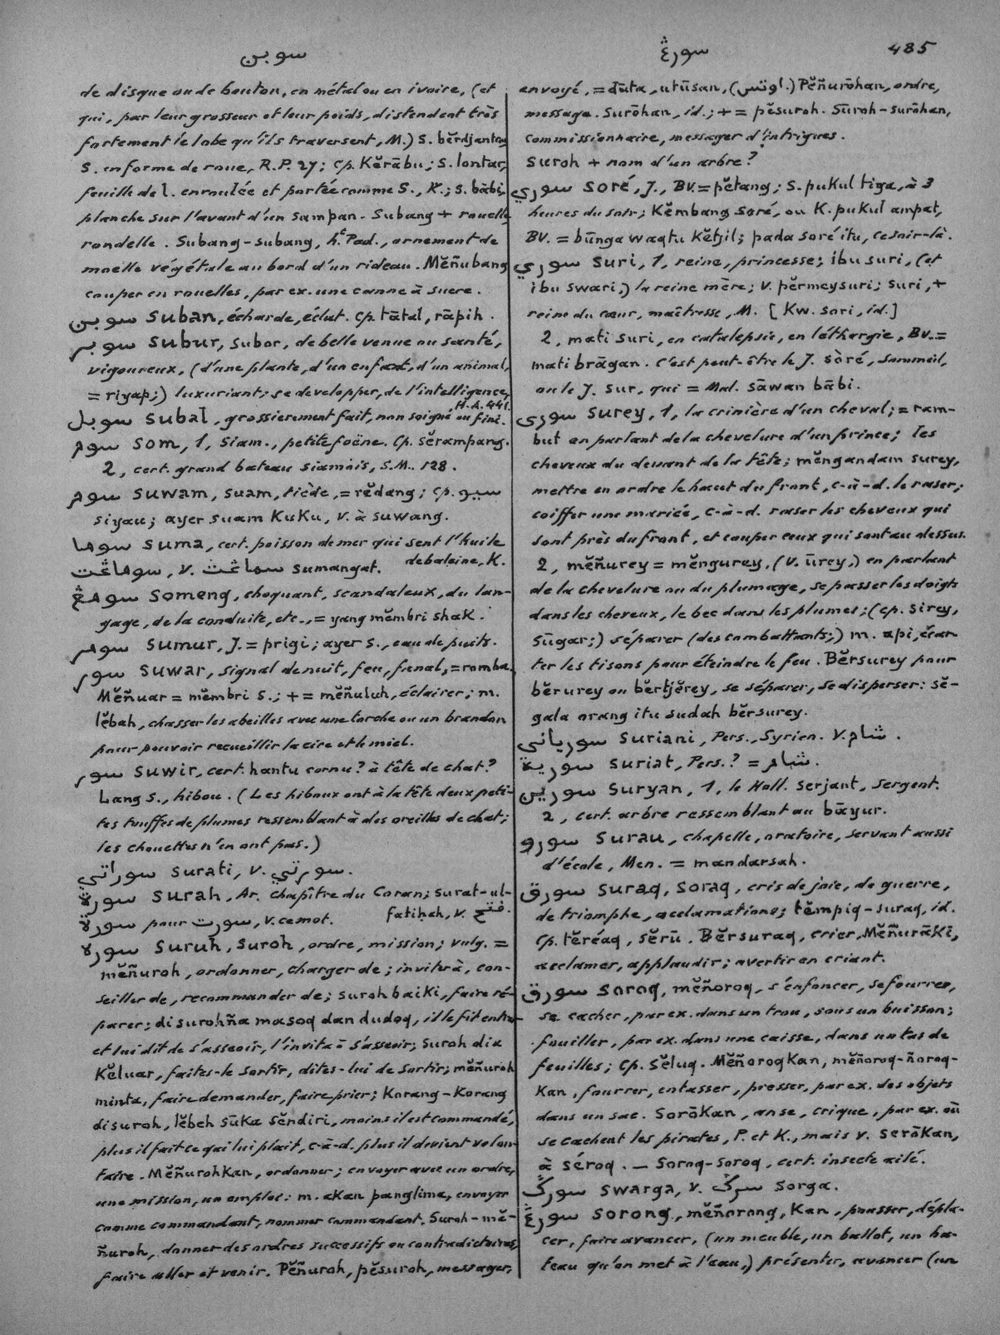 سوبن
سورڠ
485
de disque ou de bouton, en métal ou en ivoire, (et
qui, par leur grosseur et leur poids, distendent très
fortement le lobe qu'ils traversent, M.) S. bĕrdjantra,
S. en forme de roue, R.P. 27; Cp. Kĕrābu; S. lontar,
feuille de l. enroulée et portée comme S., K.; S. bābi,
planche sur l'avant d'un sampan. Subang + rouelle,
rondelle. Subang-subang, h.t Pad., ornement de
moelle végétale au bord d'un rideau. Mĕñubang
couper en rouelles, par ex. une canne à sucre.
سوبن suban, écharde, éclat. Cp. tātal, rāpih.
سوبر subur, subor, de belle venue ou santé,
vigoureux, (d'une plante, d'un enfant, d'un animal,
= riyap;) luxuriant; se développer, de l'intelligence,
H.A. 441.
سوبل subal, grossièrement fait, non soigné ou fini.
سوم som, 1, Siam., petite foëne. Cp. sĕrampang.
2, cert. grand bateau siamois, S.M. 128.
سوم suwam, suam, tiède, = rĕdang; Cp. سيو
siyau; ayer suam kuku, v. à suwang.
سوما suma, cert. poisson de mer qui sent l'huile
de baleine, K.
سوماڠت, v. سماڠت sumangat.
سومڠ someng, choquant, scandaleux, du lan-
gage, de la conduite, etc., = yang mĕmbri shak.
سومر sumur, J. = prigi; ayer s., eau de puits.
سور suwar, signal de nuit, feu, fanal, = romba,
Mĕñuar = mĕmbri s.; + = mĕñuluh, éclairer; m.
lĕbah, chasser les abeilles avec une torche ou un brandon
pour pouvoir recueillir la cire et le miel.
سور suwir, cert. hantu cornu? à tête de chat?
Lang s., hibou. (Les hiboux ont à la tête deux peti-
tes touffes de plumes ressemblant à des oreilles de chat;
les chouettes n'en ont pas.)
سوراتي surati, v. سورتي.
سورة surah, Ar. chapître du Coran; surat-ul-
fatiḥah, v. فتح.
سورة pour سورت, v. ce mot.
سوره suruh, suroh, ordre, mission; vulg. =
mĕñuroh, ordonner, charger de; inviter à, con-
seiller de, recommander de; suroh baiki, faire ré-
parer; di surohña masoq dan dudoq, il le fit entrer
et lui dit de s'asseoir, l'invita à s'asseoir; Suroh dia
Kĕluar, faites-le sortir, dites-lui de sortir; mĕñuroh
minta, faire demander, faire prier; Korang-Korang
disuroh, lĕbeh sūka sĕndiri, moins il est commandé,
plus il fait ce qui lui plait, c-à-d. plus il devient volon-
taire. Mĕñurohkan, ordonner; envoyer avec un ordre,
une mission, un emploi: m. akan panglima, envoyer
comme commandant, nommer commandant. Suroh-mĕ-
ñuroh, donner des ordres successifs ou contradictoires,
faire aller et venir. Pĕñuroh, pĕsuroh, messager,
envoyé, = dūta, utūsan, (اوتس.) Pĕñurōhan, ordre,
message. Surōhan, id.; + = pĕsuroh. Sūroh-surōhan,
commissionnaire, messager d'intrigues.
Suroh + nom d'un arbre?
سوري soré, J., BV. = pĕtang; s. pukul tiga, à 3
heures du soir; Kĕmbang soré, ou K. pukul ampat,
BV. = būnga waqtu kĕtjil; pada soré itu, ce soir-là.
سوري suri, 1, reine, princesse; ibu suri, (et
ibu swari,) la reine mère; v. pĕrmeysuri; suri, +
reine du cœur, maîtresse, M. [Kw. sori, id.]
2, mati suri, en catalepsie, en léthargie, Bv. =
mati brāgan. C'est peut-être le J. sòré, sommeil,
ou le J. sur, qui = Mal. sāwan bābi.
سوري surey, 1, la crinière d'un cheval; = ram-
but en parlant de la chevelure d'un prince; les
cheveux du devant de la tête; mĕngandam surey,
mettre en ordre le haut du front, c-à-d. le raser;
coiffer une mariée, c-à-d. raser les cheveux qui
sont près du front, et couper ceux qui sont au dessus.
2, mĕñurey = mĕngurey, (v. ūrey,) en parlant
de la chevelure ou du plumage, se passer les doigts
dans les cheveux, le bec dans les plumes; (cp. sirey,
sūgar;) séparer (des combattants;) m. api, écar-
ter les tisons pour éteindre le feu. Bĕrsurey pour
bĕrurey ou bĕrtjĕrey, se séparer, se disperser: sĕ-
gala orang itu sudah bĕrsurey.
سورياني suriani, Pers., Syrien. V. شام.
سورية suriat, Pers.? = شام.
سورين suryan, 1, le Holl. serjant, sergent.
2, cert. arbre ressemblant au bāyur.
سورو surau, chapelle, oratoire, servant aussi
d'école, Men. = mandarsah.
سورق suraq, soraq, cris de joie, de guerre,
de triomphe, acclamations; tĕmpiq-suraq, id.
Cp. tĕréaq, sĕrū. Bĕrsuraq, crier, Mĕñurāki,
acclamer, applaudir; avertir en criant.
سورق soroq, mĕñoroq, s'enfoncer, se fourrer,
se cacher, par ex. dans un trou, sous un buisson;
fouiller, par ex. dans une caisse, dans un tas de
feuilles; Cp. sĕluq. Mĕñoroqkan, mĕñoroq-ñoroq-
kan, fourrer, entasser, presser, par ex. des objets
dans un sac. Sorākan, anse, crique, par ex. où
se cachent les pirates, P. et K., mais v. serākan,
à séroq. — Soroq-soroq, cert. insecte ailé.
سورگ swarga, v. سرگ sorga.
سورڠ sorong, mĕñorong, kan, pousser, dépla-
cer, faire avancer, (un meuble, un ballot, un ba-
teau qu'on met à l'eau,) présenter, avancer (un